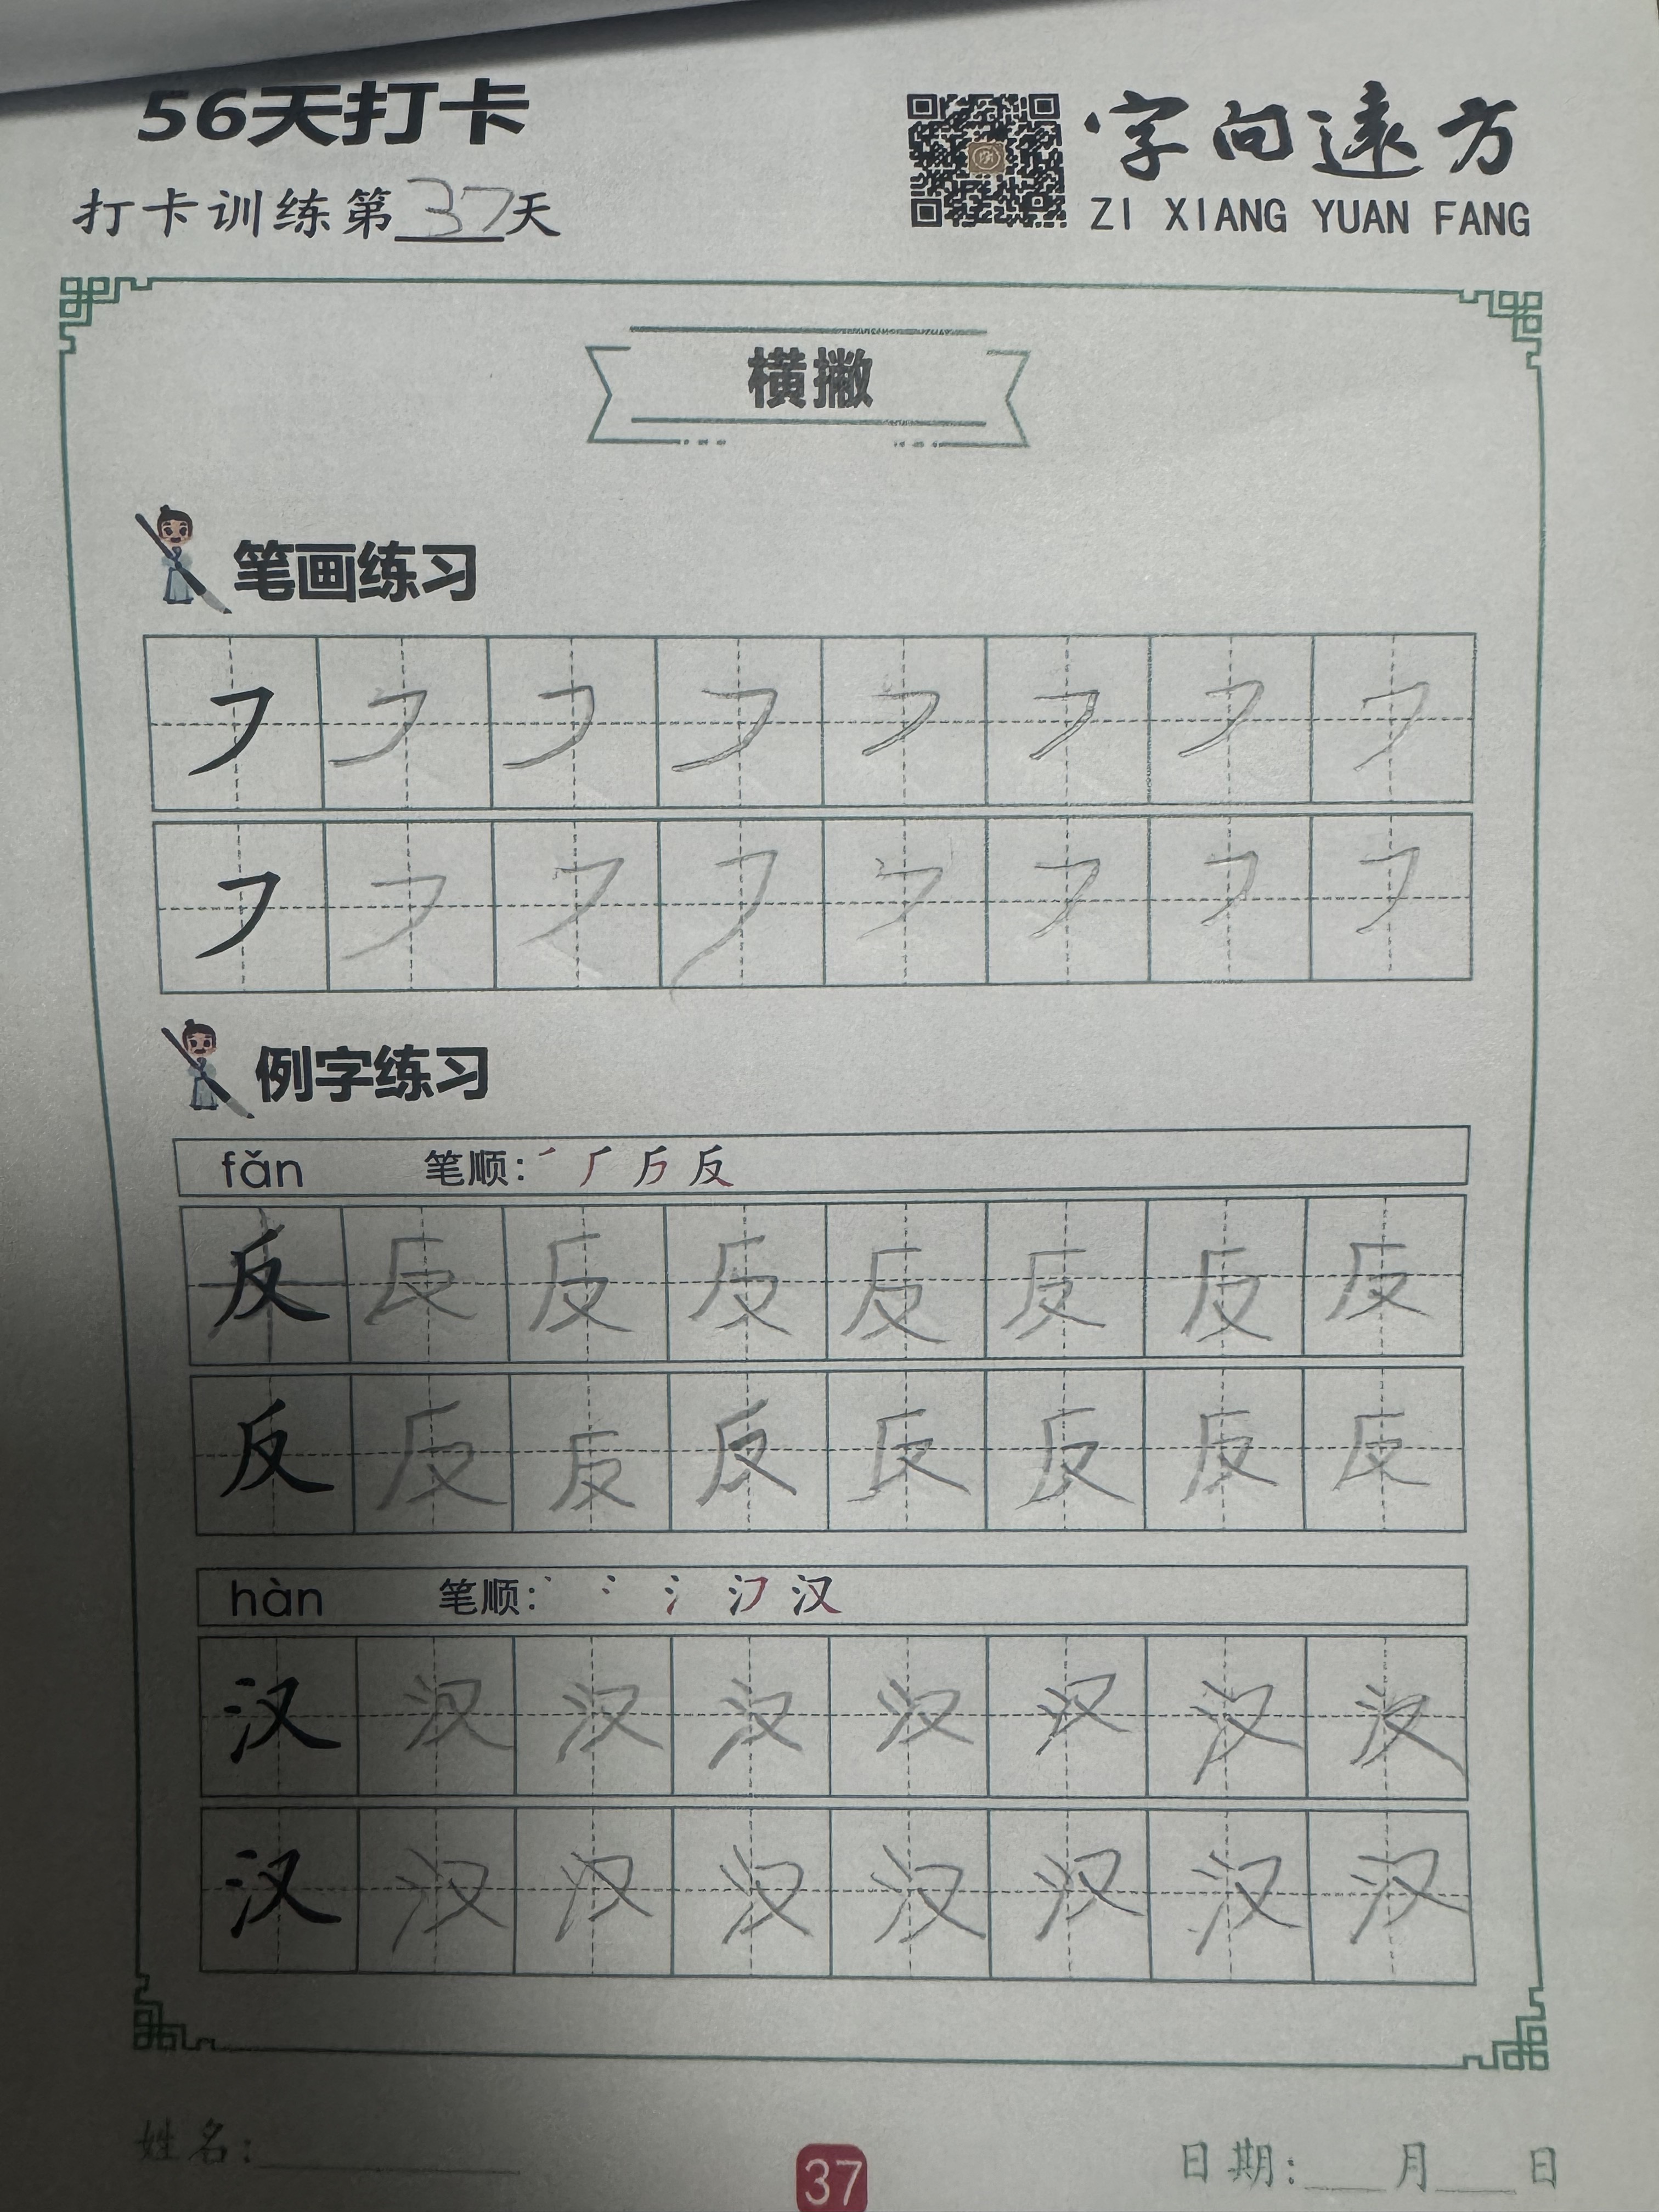 56天打卡
字向遠方
打卡训练第37天
ZI XIANG YUAN FANG
横撇
笔画练习
㇇ ㇇ ㇇ ㇇ ㇇ ㇇ ㇇ ㇇
㇇ ㇇ ㇇ ㇇ ㇇ ㇇ ㇇ ㇇
例字练习
fǎn 笔顺: ㇒ 厂 𠂆 反
反 反 反 反 反 反 反 反
反 反 反 反 反 反 反 反
hàn 笔顺: 丶 冫 氵 汉
汉 汉 汉 汉 汉 汉 汉 汉
汉 汉 汉 汉 汉 汉 汉 汉
姓名:
37
日期: 月 日